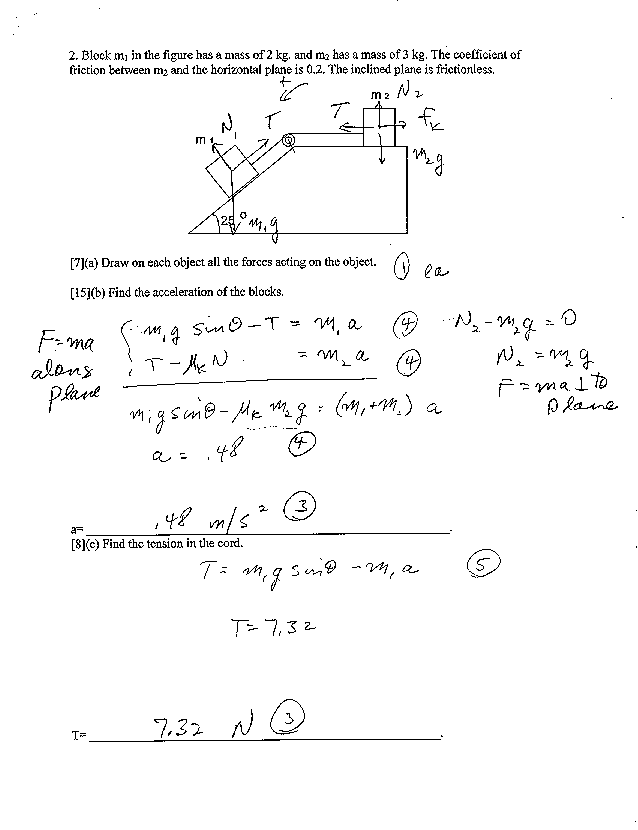 2. Block m₁ in the figure has a mass of 2 kg. and m₂ has a mass of 3 kg. The coefficient of
friction between m₂ and the horizontal plane is 0.2. The inclined plane is frictionless.
+
m 2 N₂
T fₖ
N₁ T
m 1
m₂g
25° m₁g
[7](a) Draw on each object all the forces acting on the object. ① ea
[15](b) Find the acceleration of the blocks.
F=ma
along
plane
m₁g sinθ - T = m₁ a ④
T - μₖ N = m₂ a ④
m₁g sinθ - μₖ m₂g = (m₁+m₂) a
a = .48 ④
N₂ - m₂g = 0
N₂ = m₂g
F = ma ⊥ to
plane
a= .48 m/s² ③
[8](c) Find the tension in the cord.
T = m₁g sinθ - m₁ a ⑤
T = 7.32
T= 7.32 N ③